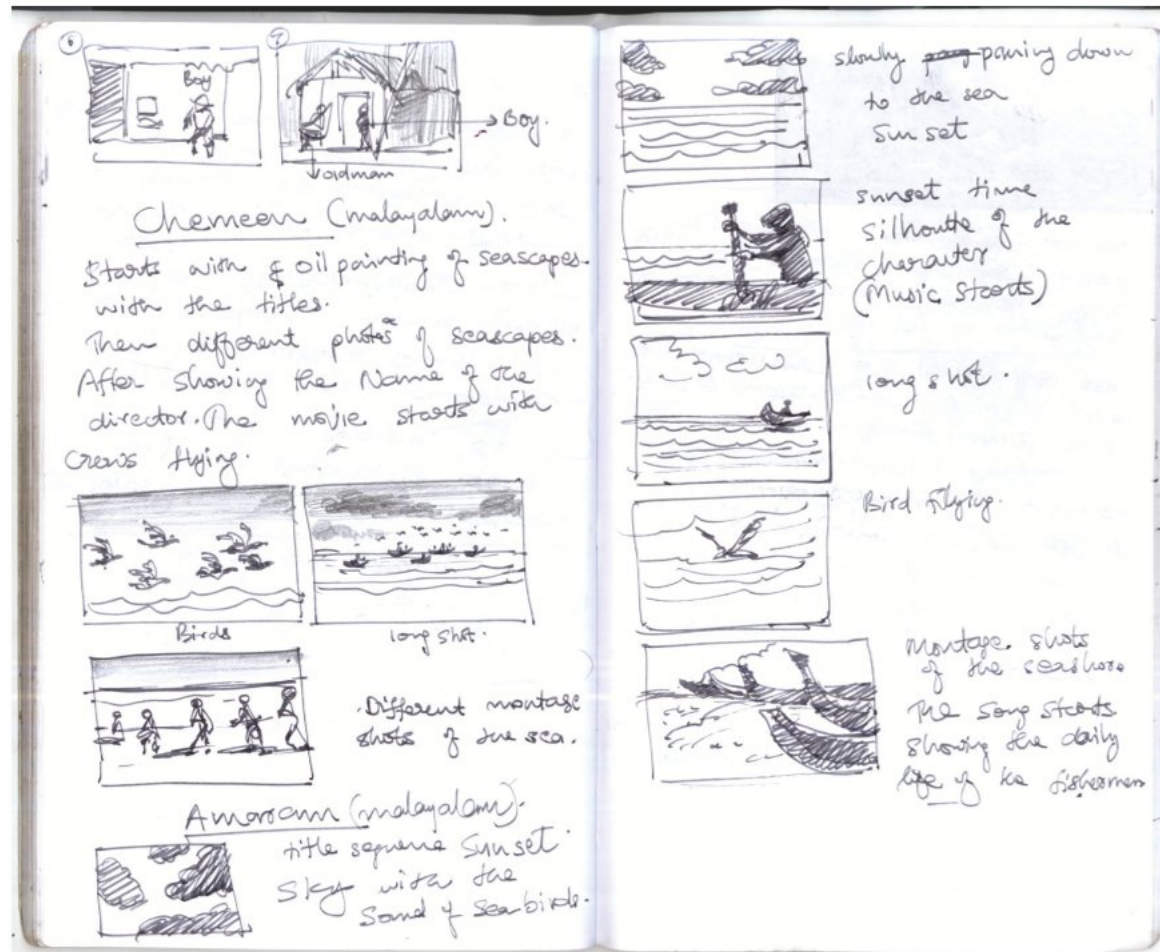 6
7
Boy
Boy.
oldman
Chemeen (malayalam).
Starts with oil painting of seascapes.
with the titles.
Then different photos of seascapes.
After showing the Name of the
director. The movie starts with
Crews flying.
Birds
long shot.
Different montage
shots of the sea.
Amaram (malayalam).
title sequence Sunset
Sky with the
Sound of sea birds.
slowly paning down
to the sea
Sunset
sunset time
Silhoutte of the
character
(Music Starts)
long shot.
Bird flying.
Montage shots
of the seashore
The Song Starts
showing the daily
life of the fishermen